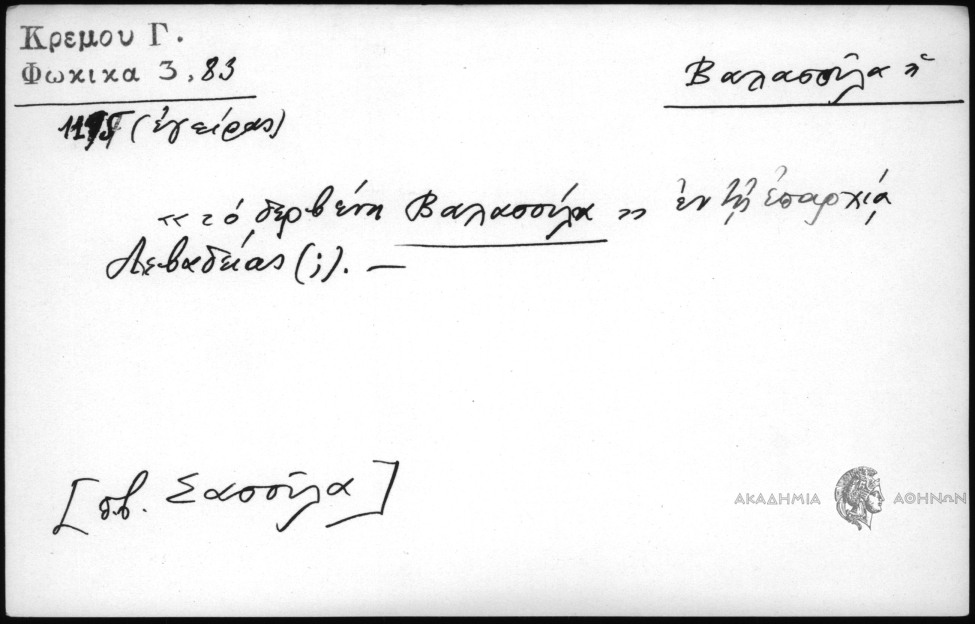 Κρεμου Γ.
Φωκικα 3, 83
Βαλασσῦλα ἡ
(ἐγείρας)
«τό δερβένη Βαλασσύλα» ἐν τῇ ἐπαρχίᾳ
Λεβαδείας (;). —
[πβ. Σασσῦλα]
ΑΚΑΔΗΜΙΑ ΑΘΗΝΩΝ